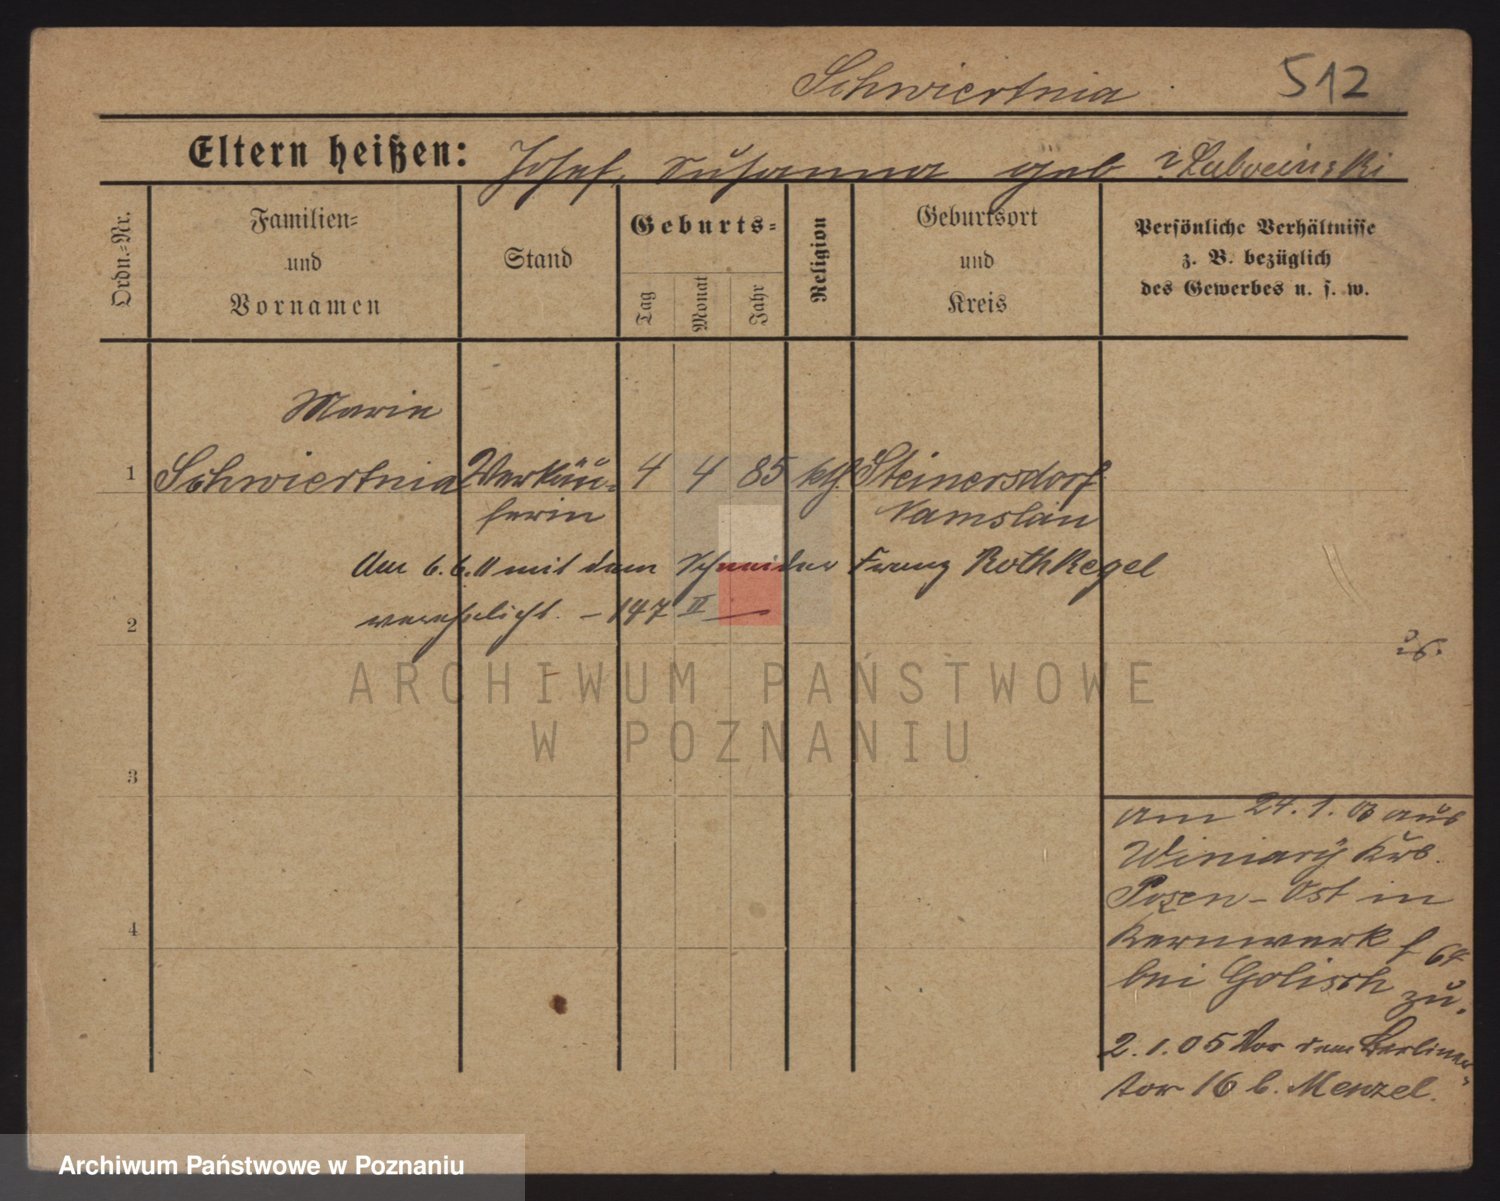 Schwiertnia 512
Eltern heißen: Josef, Susanna geb
Ordn.-Nr.
Familien-
und
Vornamen
Stand
Geburts-
Tag
Monat
Jahr
Religion
Geburtsort
und
Kreis
Persönliche Verhältnisse
z. B. bezüglich
des Gewerbes u. s. w.
Marie
1 Schwiertnia Verkäu- 4 4 85 kth Steinersdorf
ferin Namslau
Am 6.6.11 mit dem Schneider Franz Rothkegel
2 verehelicht. - 147 II -
3
4
Am 24.1.03 aus
Winiary Krs.
Posen-Ost in
Kernwerk 64
bei Golisch zu.
2.1.05 Vor dem Berliner-
tor 16 b. Menzel.
ARCHIWUM PAŃSTWOWE
W POZNANIU
Archiwum Państwowe w Poznaniu